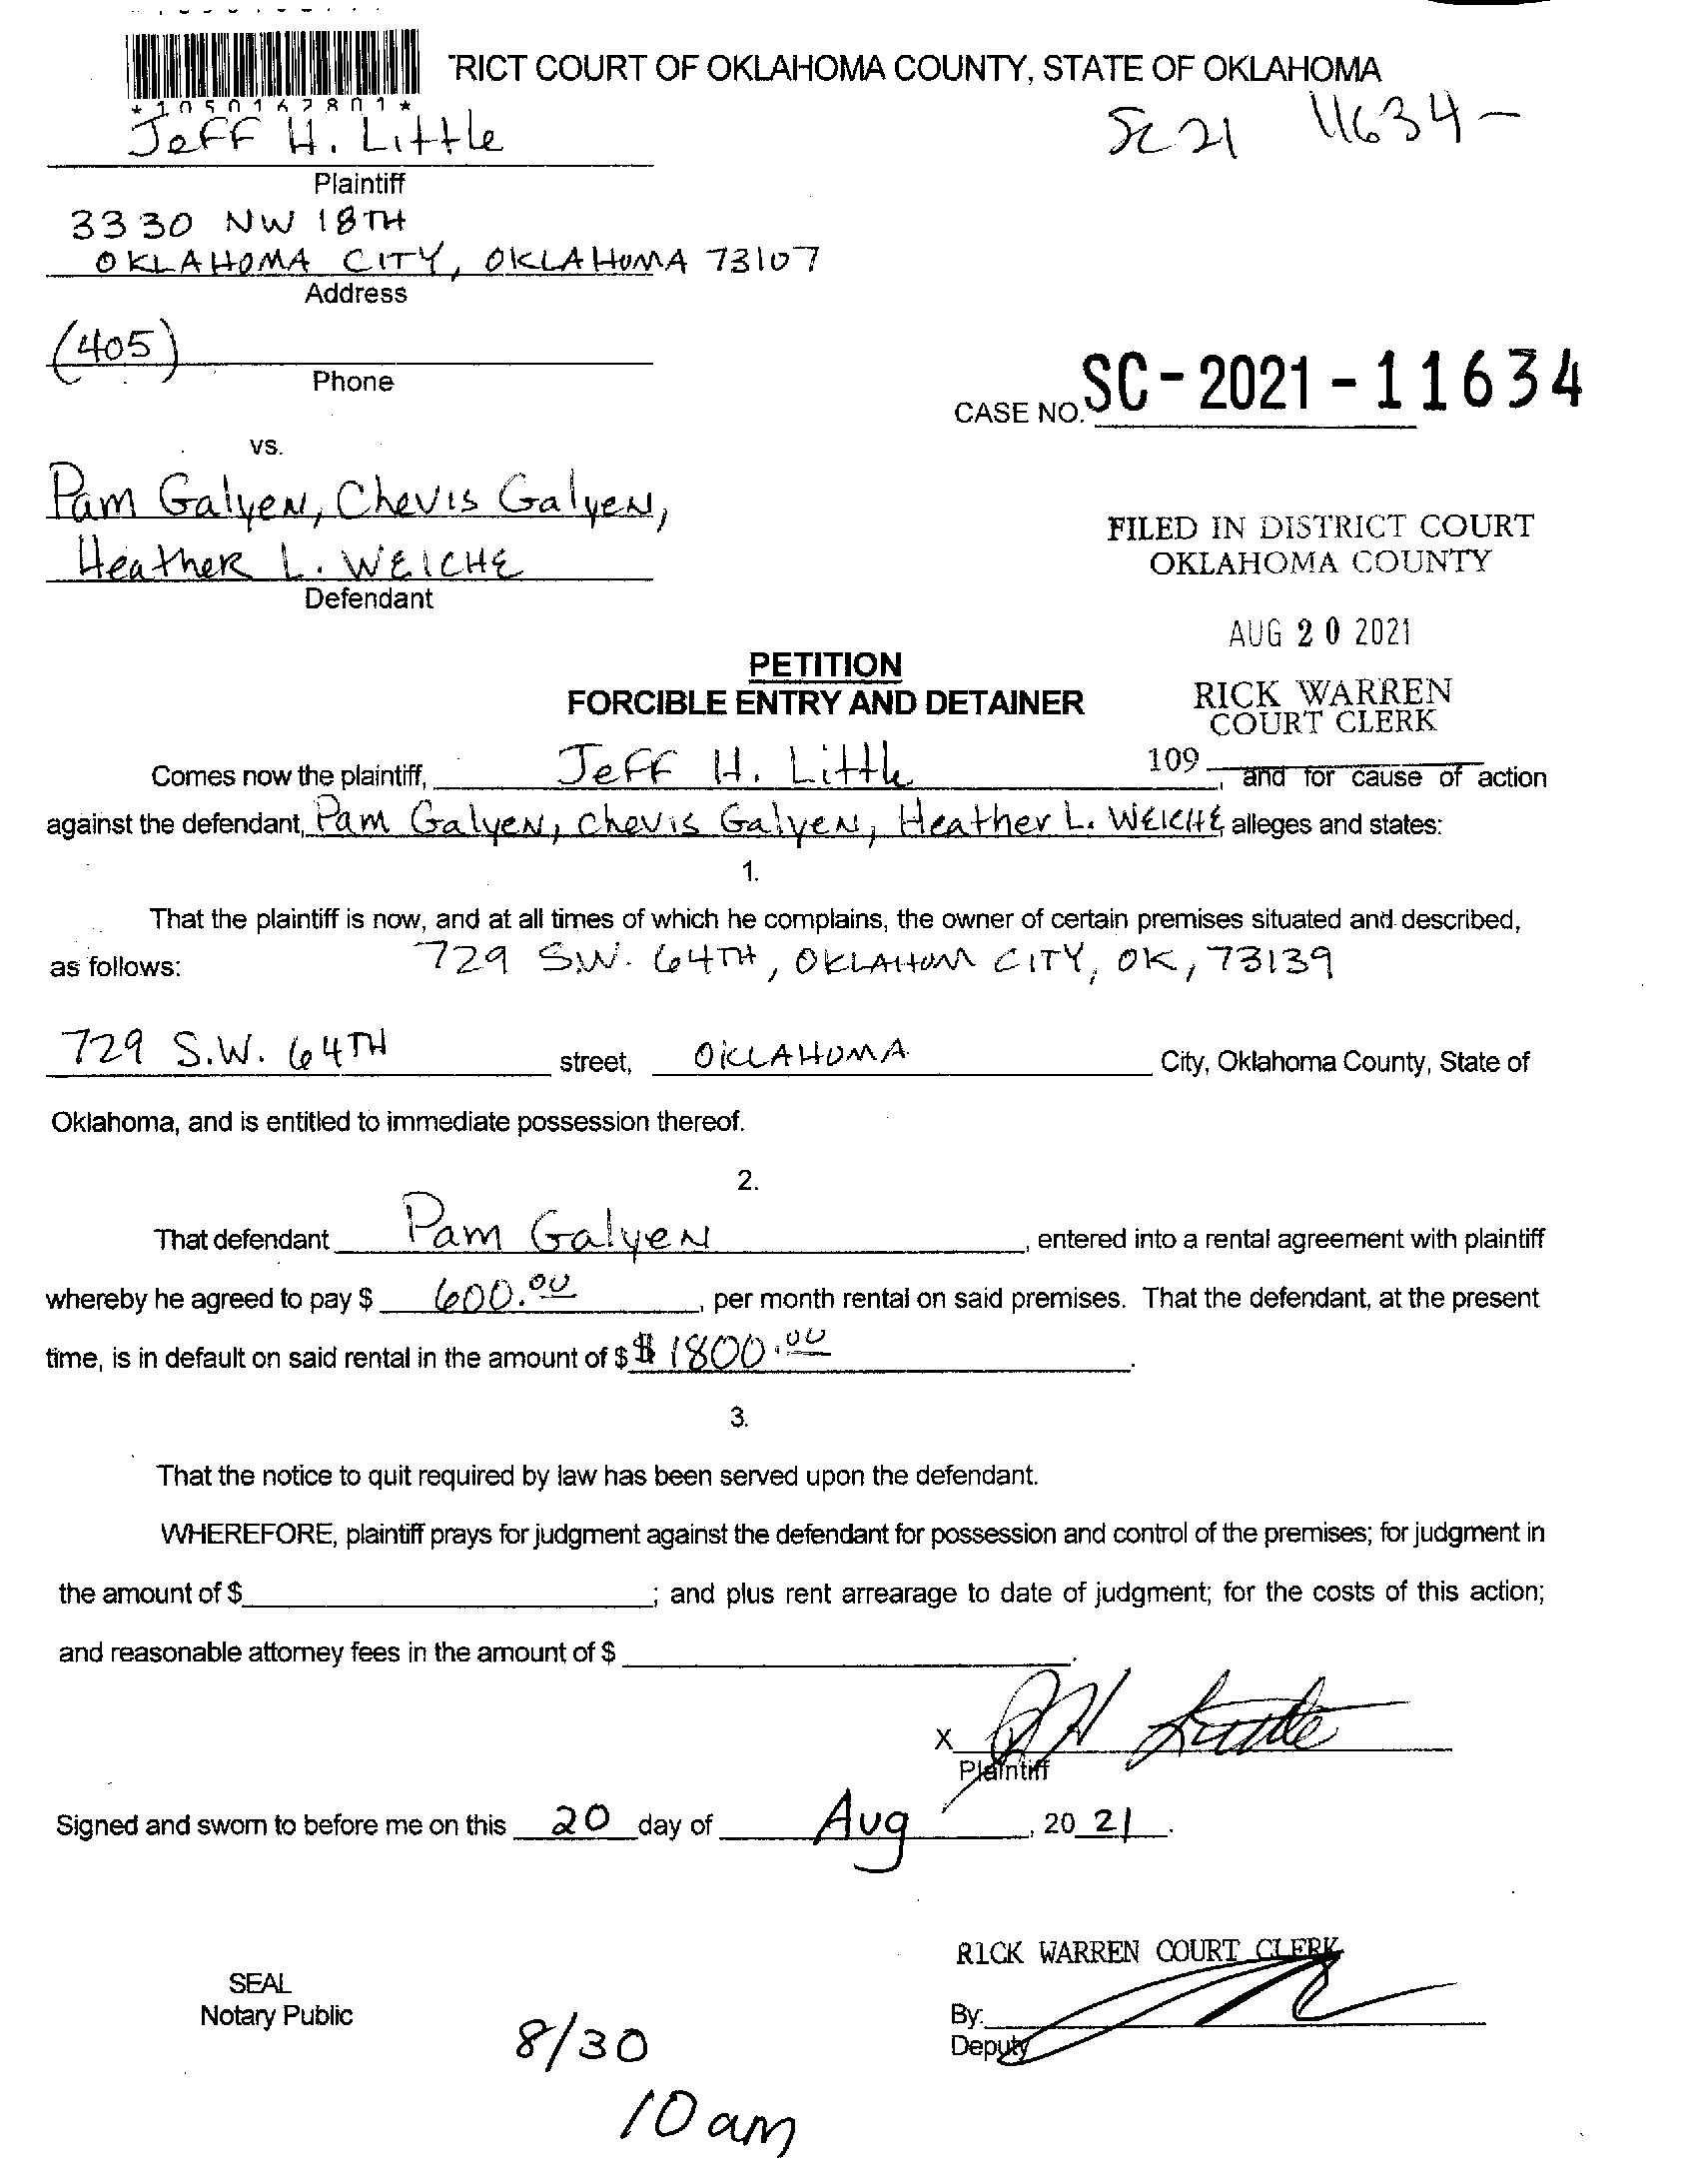 *1050167801*
RICT COURT OF OKLAHOMA COUNTY, STATE OF OKLAHOMA
Jeff H. Little
SC 21 11634-
Plaintiff
3330 NW 18TH
OKLAHOMA CITY, OKLAHOMA 73107
Address
(405)
Phone
CASE NO. SC-2021-11634
vs.
Pam Galyen, Chevis Galyen,
Heather L. WEICHE
Defendant
FILED IN DISTRICT COURT
OKLAHOMA COUNTY
AUG 20 2021
PETITION
FORCIBLE ENTRY AND DETAINER
RICK WARREN
COURT CLERK
109
Comes now the plaintiff, Jeff H. Little, and for cause of action
against the defendant, Pam Galyen, Chevis Galyen, Heather L. WEICHE alleges and states:
1.
That the plaintiff is now, and at all times of which he complains, the owner of certain premises situated and described,
as follows: 729 S.W. 64TH, OKLAHOM CITY, OK, 73139
729 S.W. 64TH street, OKLAHOMA City, Oklahoma County, State of
Oklahoma, and is entitled to immediate possession thereof.
2.
That defendant Pam Galyen, entered into a rental agreement with plaintiff
whereby he agreed to pay $ 600.00, per month rental on said premises. That the defendant, at the present
time, is in default on said rental in the amount of $ $1800.00.
3.
That the notice to quit required by law has been served upon the defendant.
WHEREFORE, plaintiff prays for judgment against the defendant for possession and control of the premises; for judgment in
the amount of $; and plus rent arrearage to date of judgment; for the costs of this action;
and reasonable attorney fees in the amount of $.
X JH Little
Plaintiff
Signed and sworn to before me on this 20 day of Aug, 20 21.
RICK WARREN COURT CLERK
SEAL
Notary Public
By:
Deputy
8/30
10 am